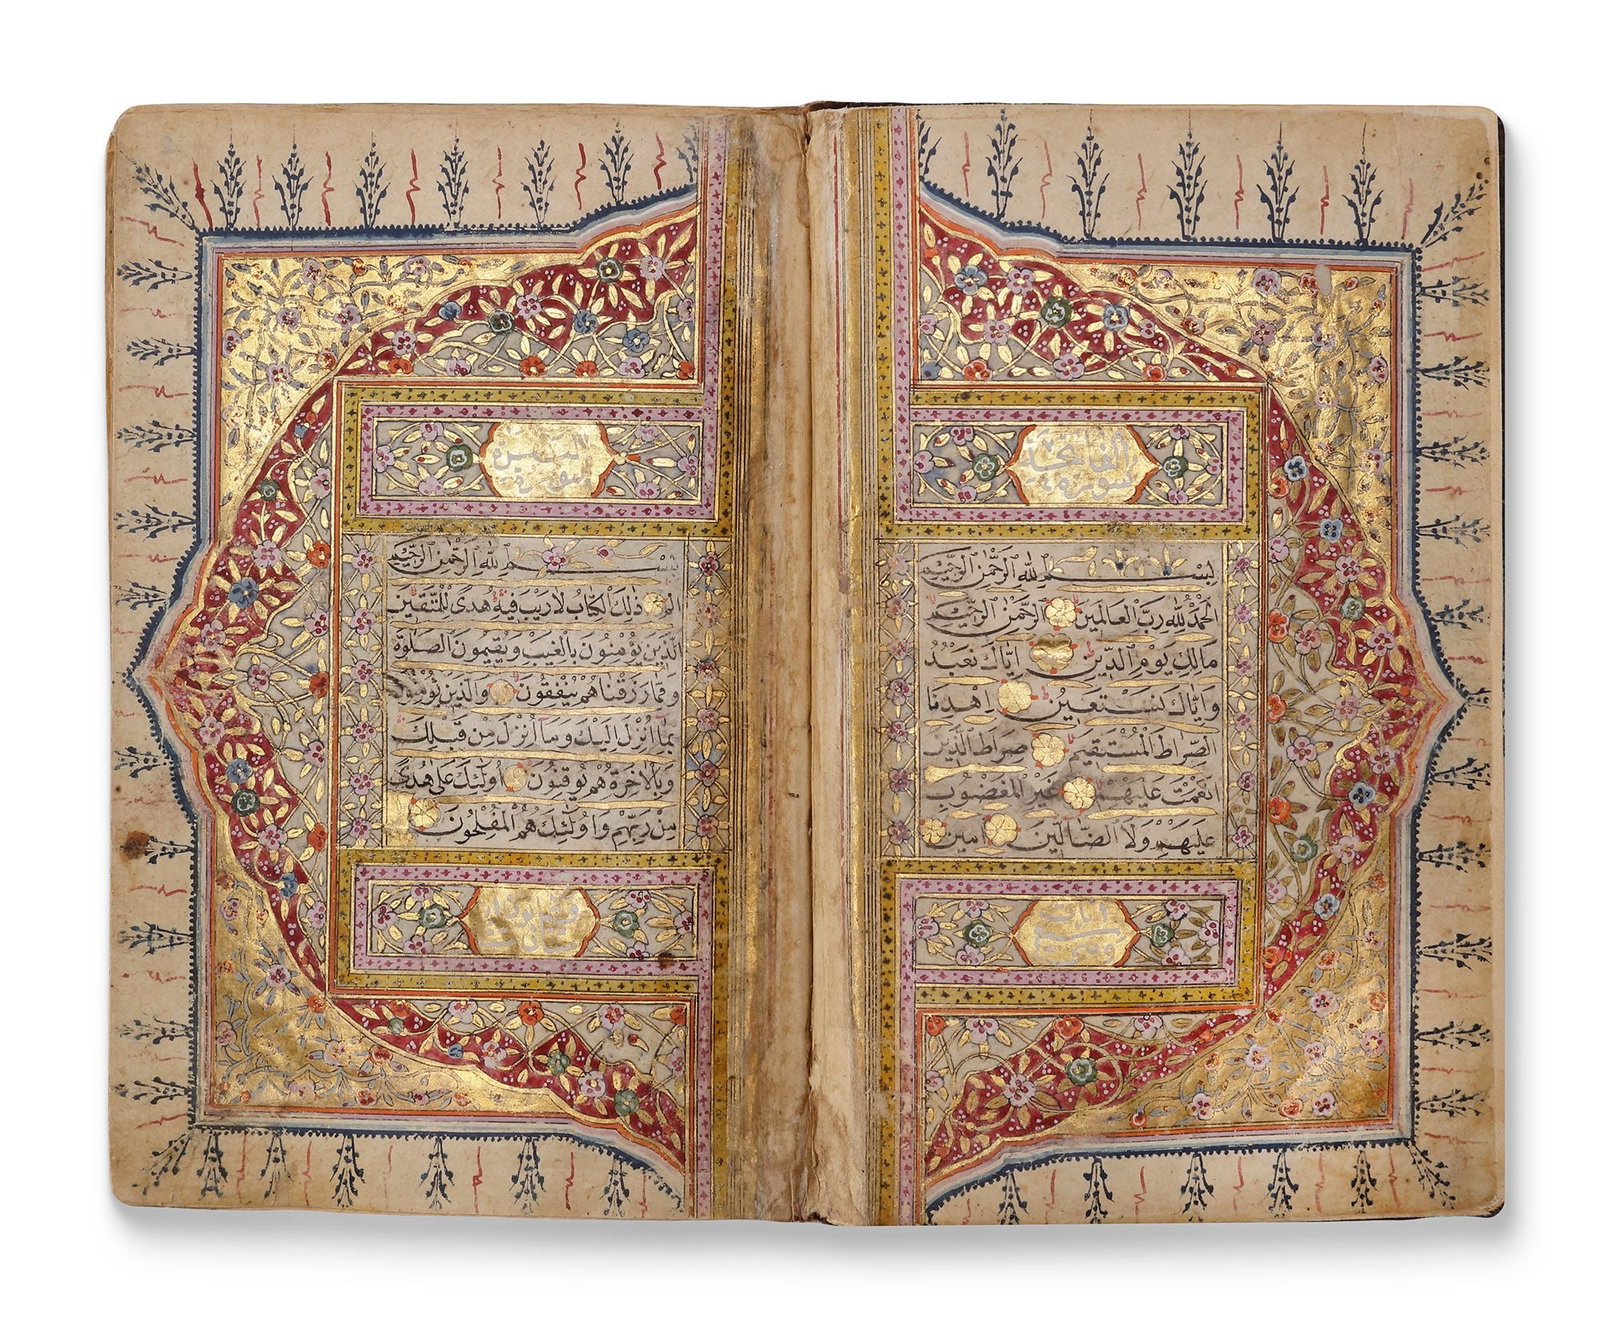 سورة الفاتحة
بِسْمِ اللهِ الرَّحْمٰنِ الرَّحِيمِ
اَلْحَمْدُ لِلّٰهِ رَبِّ الْعَالَمِينَ الرَّحْمٰنِ الرَّحِيمِ
مَالِكِ يَوْمِ الدِّينِ اِيَّاكَ نَعْبُدُ
وَاِيَّاكَ نَسْتَعِينُ اِهْدِنَا
الصِّرَاطَ الْمُسْتَقِيمَ صِرَاطَ الَّذِينَ
اَنْعَمْتَ عَلَيْهِمْ غَيْرِ الْمَغْضُوبِ
عَلَيْهِمْ وَلَا الضَّالِّينَ آمِينَ
بِسْمِ اللهِ الرَّحْمٰنِ الرَّحِيمِ
الٓمٓ ذٰلِكَ الْكِتَابُ لَا رَيْبَ فِيهِ هُدًى لِلْمُتَّقِينَ
الَّذِينَ يُؤْمِنُونَ بِالْغَيْبِ وَيُقِيمُونَ الصَّلٰوةَ
وَمِمَّا رَزَقْنَاهُمْ يُنْفِقُونَ وَالَّذِينَ يُؤْمِنُونَ
بِمَا اُنْزِلَ اِلَيْكَ وَمَا اُنْزِلَ مِنْ قَبْلِكَ
وَبِالْاٰخِرَةِ هُمْ يُوقِنُونَ اُولٰئِكَ عَلٰى هُدًى
مِنْ رَبِّهِمْ وَاُولٰئِكَ هُمُ الْمُفْلِحُونَ